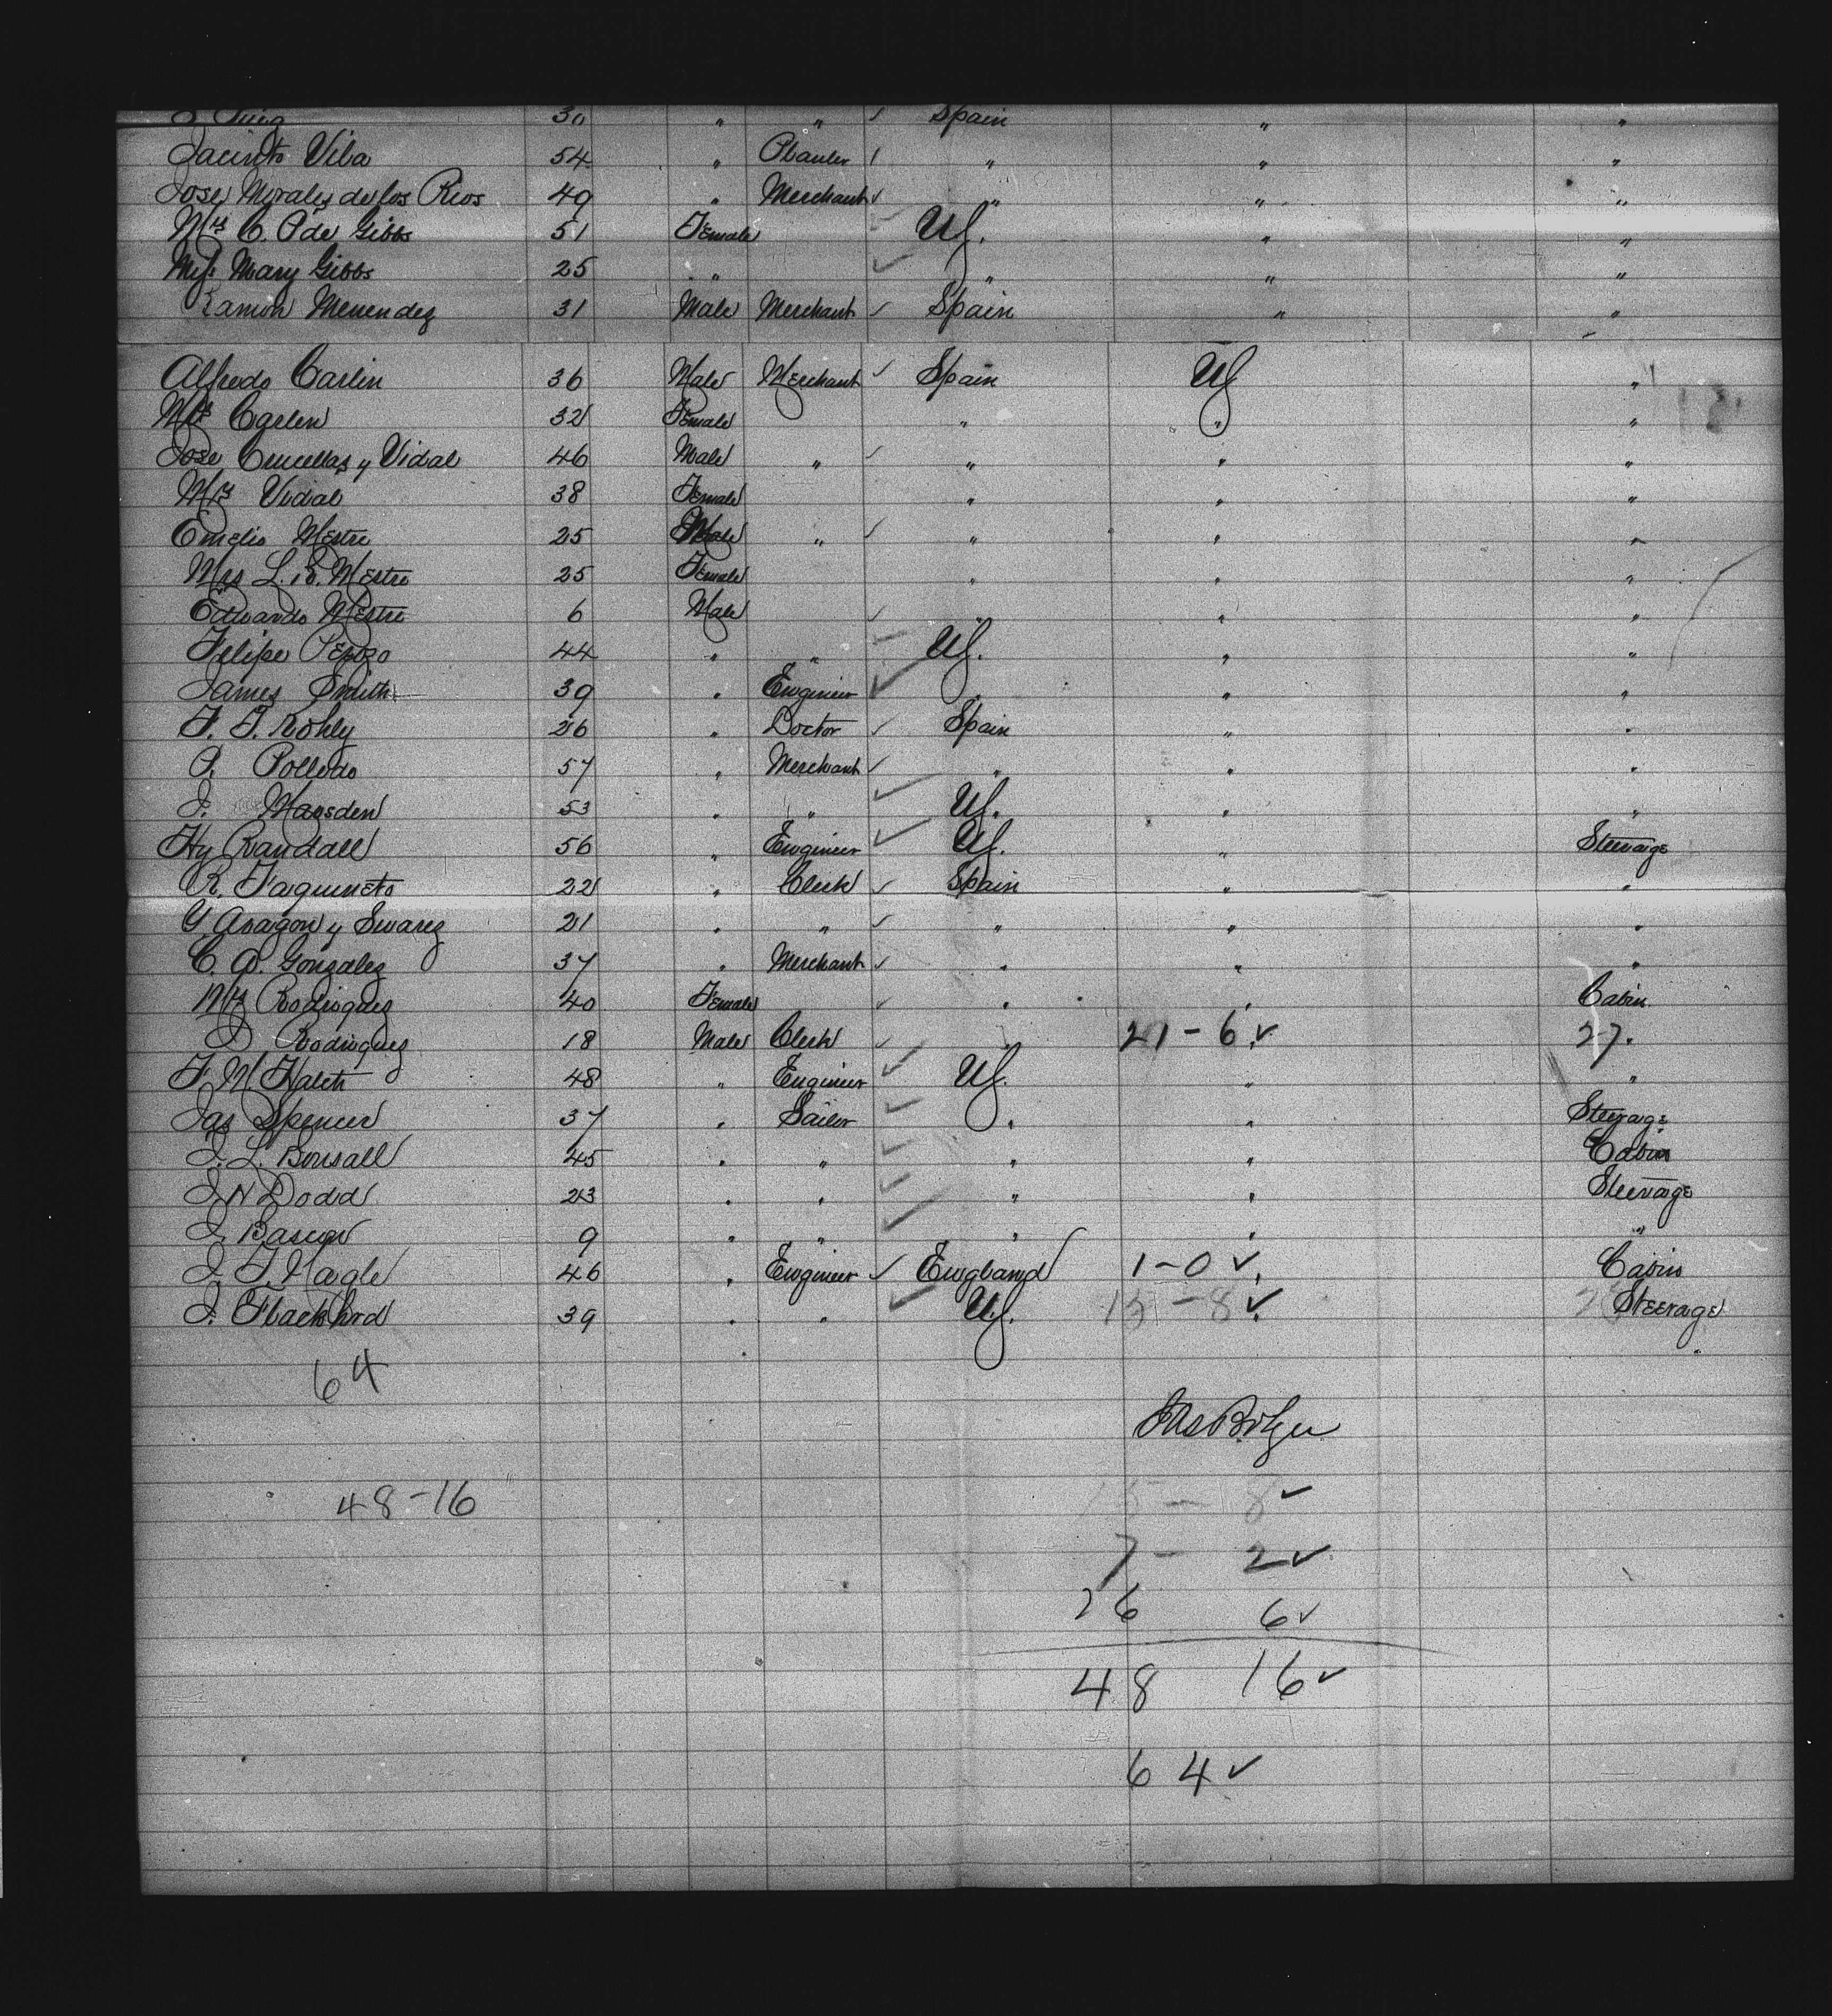 30 " " ✓ Spain " "
Jacinto Vila 54 " Planter " " "
Jose Morales de los Rios 49 " Merchant ✓ " " "
Mrs C. P de Gibbs 51 Female US. " "
Miss Mary Gibbs 25 " ✓ " " "
Ramon Menendez 31 Male Merchant ✓ Spain " "
Alfredo Carlin 36 Male Merchant ✓ Spain US "
Mrs 32 Female " " "
Jose Crucellas y Vidal 46 Male " ✓ " " "
Mrs Vidal 38 Female " " "
Emelio Mestre 25 Male " ✓ " " "
Mrs L. R. Mestre 25 Female " " "
Eduardo Mestre 6 Male ✓ " " "
Felipe 44 " " US. " "
James Smith 39 " Engineer ✓ " " "
F. F. Kohly 26 " Doctor ✓ Spain " "
P. Polledo 57 " Merchant ✓ " " "
J. Marsden 53 " " ✓ US. " "
Hy Randall 56 " Engineer ✓ US. " Steerage
R. Faquineto 22 " Clerk ✓ Spain " "
Y. Aragon y Suarez 21 " " ✓ " " "
C. A. Gonzalez 37 " Merchant ✓ " " "
Mrs Rodriguez 40 Female ✓ " " Cabin
J Rodriguez 18 Male Clerk ✓ " 21 - 6 ✓ 27.
F. M. 48 " Engineer ✓ US. " "
Jas Spencer 37 " Sailor ✓ " " Steerage
J. L. Bonsall 45 " " ✓ " " Cabin
J. N Dodd 23 " " ✓ " " Steerage
J. 9 " " ✓ " " "
J. F. Nagle 46 " Engineer ✓ England 1-0 ✓ Cabin
J. 39 " " ✓ US. 15 - 8 ✓ Steerage
64 "
48-16 15 - 8 ✓
7 - 2 ✓
26 6 ✓
48 16 ✓
64 ✓